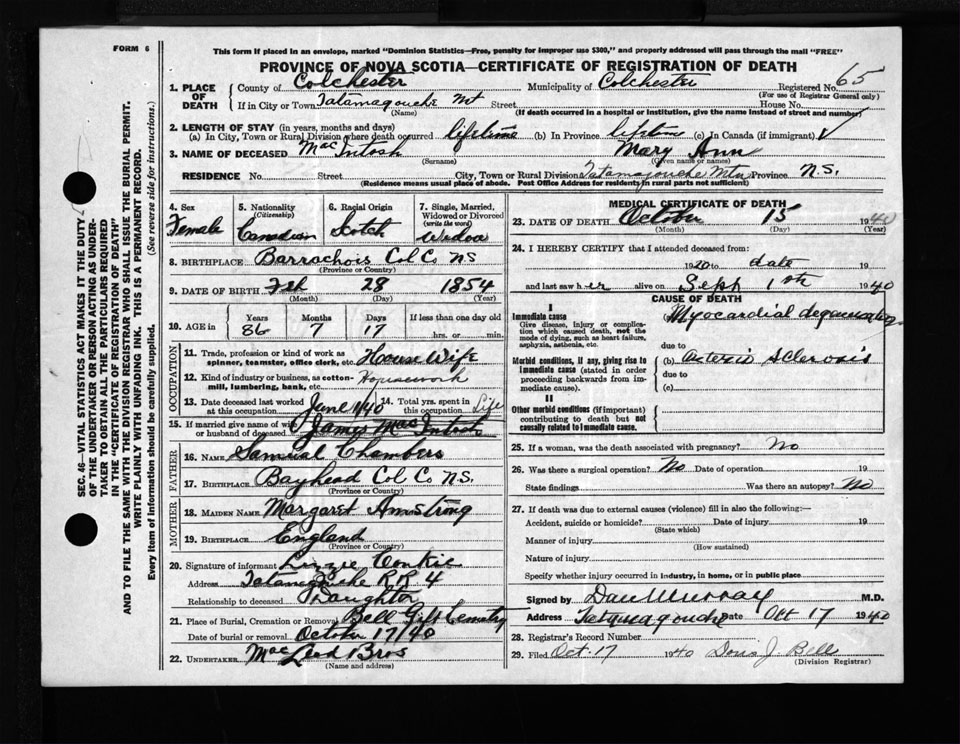 FORM 6
SEC. 46—VITAL STATISTICS ACT MAKES IT THE DUTY
OF THE UNDERTAKER OR PERSON ACTING AS UNDER-
TAKER TO OBTAIN ALL THE PARTICULARS REQUIRED
IN THE "CERTIFICATE OF REGISTRATION OF DEATH"
AND TO FILE THE SAME WITH THE DIVISION REGISTRAR WHO SHALL ISSUE THE BURIAL PERMIT.
WRITE PLAINLY WITH UNFADING INK. THIS IS A PERMANENT RECORD.
Every item of information should be carefully supplied. (See reverse side for instructions.)
This form if placed in an envelope, marked "Dominion Statistics—Free, penalty for improper use $300," and properly addressed will pass through the mail "FREE"
PROVINCE OF NOVA SCOTIA—CERTIFICATE OF REGISTRATION OF DEATH
1. PLACE OF DEATH County of Colchester Municipality of Colchester Registered No. 65
(For use of Registrar General only)
If in City or Town Tatamagouche Mt Street House No.
(Name) (If death occurred in a hospital or institution, give the name instead of street and number)
2. LENGTH OF STAY (in years, months and days)
(a) In City, Town or Rural Division where death occurred lifetime (b) In Province lifetime (c) In Canada (if immigrant) √
3. NAME OF DECEASED MacIntosh Mary Ann
(Surname) (Given name or names)
RESIDENCE No. Street City, Town or Rural Division Tatamagouche Mtn Province N.S.
(Residence means usual place of abode. Post Office Address for residents in rural parts not sufficient)
4. Sex Female
5. Nationality (Citizenship) Canadian
6. Racial Origin Scotch
7. Single, Married, Widowed or Divorced (write the word) Widow
8. BIRTHPLACE Barrachois Col Co NS
(Province or Country)
9. DATE OF BIRTH Feb 28 1854
(Month) (Day) (Year)
10. AGE in Years Months Days If less than one day old
86 7 17 hrs. or min.
OCCUPATION
11. Trade, profession or kind of work as spinner, teamster, office clerk, etc. House Wife
12. Kind of industry or business, as cotton-mill, lumbering, bank, etc. Housework
13. Date deceased last worked at this occupation June 1/40 14. Total yrs. spent in this occupation Life
15. If married give name of wife or husband of deceased James MacIntosh
FATHER
16. NAME Samual Chambers
17. BIRTHPLACE Bayhead Col Co N.S.
(Province or Country)
MOTHER
18. MAIDEN NAME Margaret Armstrong
19. BIRTHPLACE England
(Province or Country)
20. Signature of informant Lizzie
Address Tatamagouche R.R. 4
Relationship to deceased Daughter
21. Place of Burial, Cremation or Removal Bell Gift Cemetry
Date of burial or removal October 17/40
22. UNDERTAKER Mac Leod Bros
(Name and address)
MEDICAL CERTIFICATE OF DEATH
23. DATE OF DEATH October 15 1940
(Month) (Day) (Year)
24. I HEREBY CERTIFY that I attended deceased from:
1920 to date 19
and last saw her alive on Sept 1st 1940
CAUSE OF DEATH
I
Immediate cause Myocardial degeneration
Give disease, injury or complication which caused death, not the mode of dying, such as heart failure, asphyxia, asthenia, etc.
due to
Morbid conditions, if any, giving rise to immediate cause (stated in order proceeding backwards from immediate cause).
(b) arterio sclerosis
due to
(c)
II
Other morbid conditions (if important) contributing to death but not causally related to immediate cause.
25. If a woman, was the death associated with pregnancy? No
26. Was there a surgical operation? No Date of operation 19
State findings Was there an autopsy? No
27. If death was due to external causes (violence) fill in also the following:—
Accident, suicide or homicide? Date of injury 19
(State which)
Manner of injury
(How sustained)
Nature of injury
Specify whether injury occurred in industry, in home, or in public place
Signed by Dan Murray M.D.
Address Tatamagouche Date Oct 17 1940
28. Registrar's Record Number
29. Filed Oct. 17 1940 Doris J. Bell
(Division Registrar)